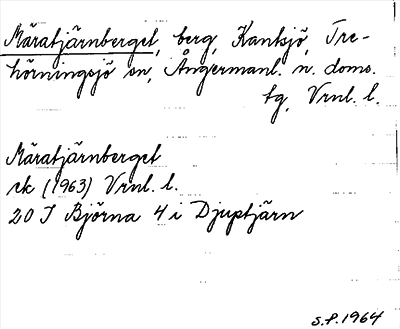 Märatjärnberget, berg, Kantsjö, Tre-
hörningsjö sn, Ångermanl. n. doms.
tg, Vrnl. l.
Märatjärnberget
rk (1963) Vrnl. l.
20 J Björna 4 i Djuptjärn
S.P. 1964